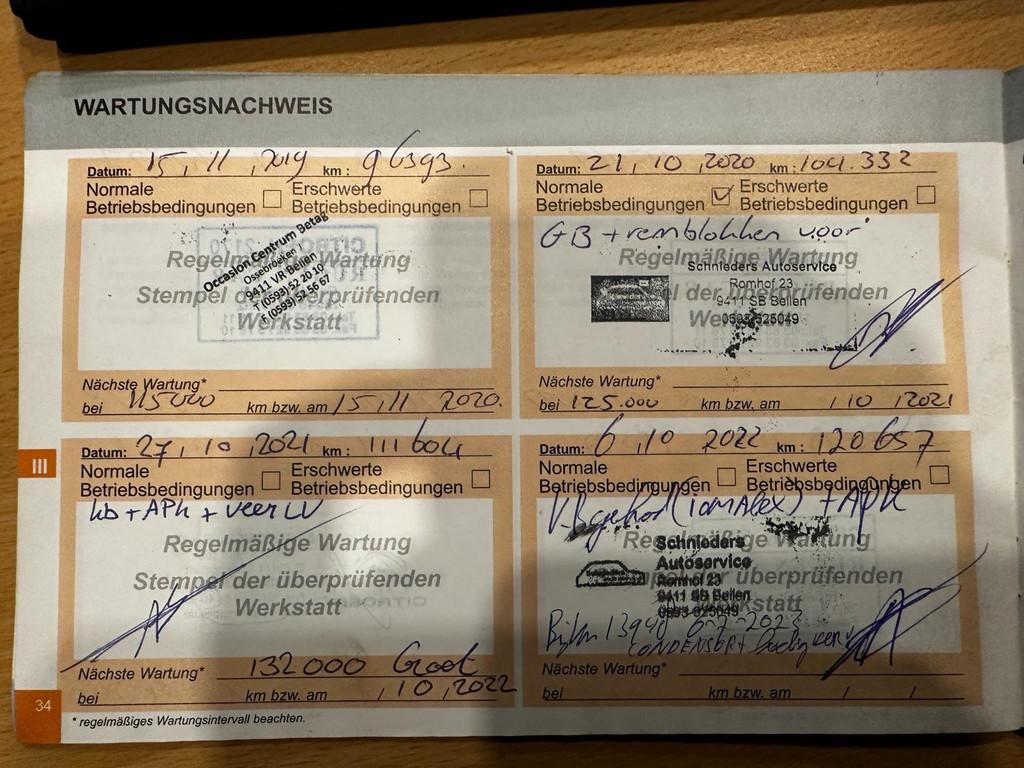 WARTUNGSNACHWEIS
Datum: 15, 11, 2019 km: 96393.
Normale Betriebsbedingungen
Erschwerte Betriebsbedingungen
Regelmäßige Wartung
Stempel der überprüfenden
Werkstatt
Occasion Centrum Betag
Ossebroeken
9411 VR Beilen
T (0593) 52 20 10
F (0593) 52 56 67
Nächste Wartung*
bei 115000 km bzw. am 15, 11 2020.
Datum: 21, 10, 2020 km: 104.332
Normale Betriebsbedingungen
Erschwerte Betriebsbedingungen
GB + remblokken voor
Regelmäßige Wartung
Stempel der überprüfenden
Werkstatt
Schnieders Autoservice
Romhof 23
9411 SB Beilen
0593-525049
Nächste Wartung*
bei 125.000 km bzw. am / 10 / 2021
III
Datum: 27, 10, 2021 km: 111604
Normale Betriebsbedingungen
Erschwerte Betriebsbedingungen
+ APK + veer LV
Regelmäßige Wartung
Stempel der überprüfenden
Werkstatt
Nächste Wartung* 132000 Groot
bei km bzw. am , 10, 2022
Datum: 6, 10 2022 km: 120657
Normale Betriebsbedingungen
Erschwerte Betriebsbedingungen
+ APK
Regelmäßige Wartung
Stempel der überprüfenden
Werkstatt
Schnieders
Autoservice
Romhof 23
9411 SB Beilen
0593-525049
2023
CONDENSOR+
Nächste Wartung*
bei km bzw. am / /
34
* regelmäßiges Wartungsintervall beachten.